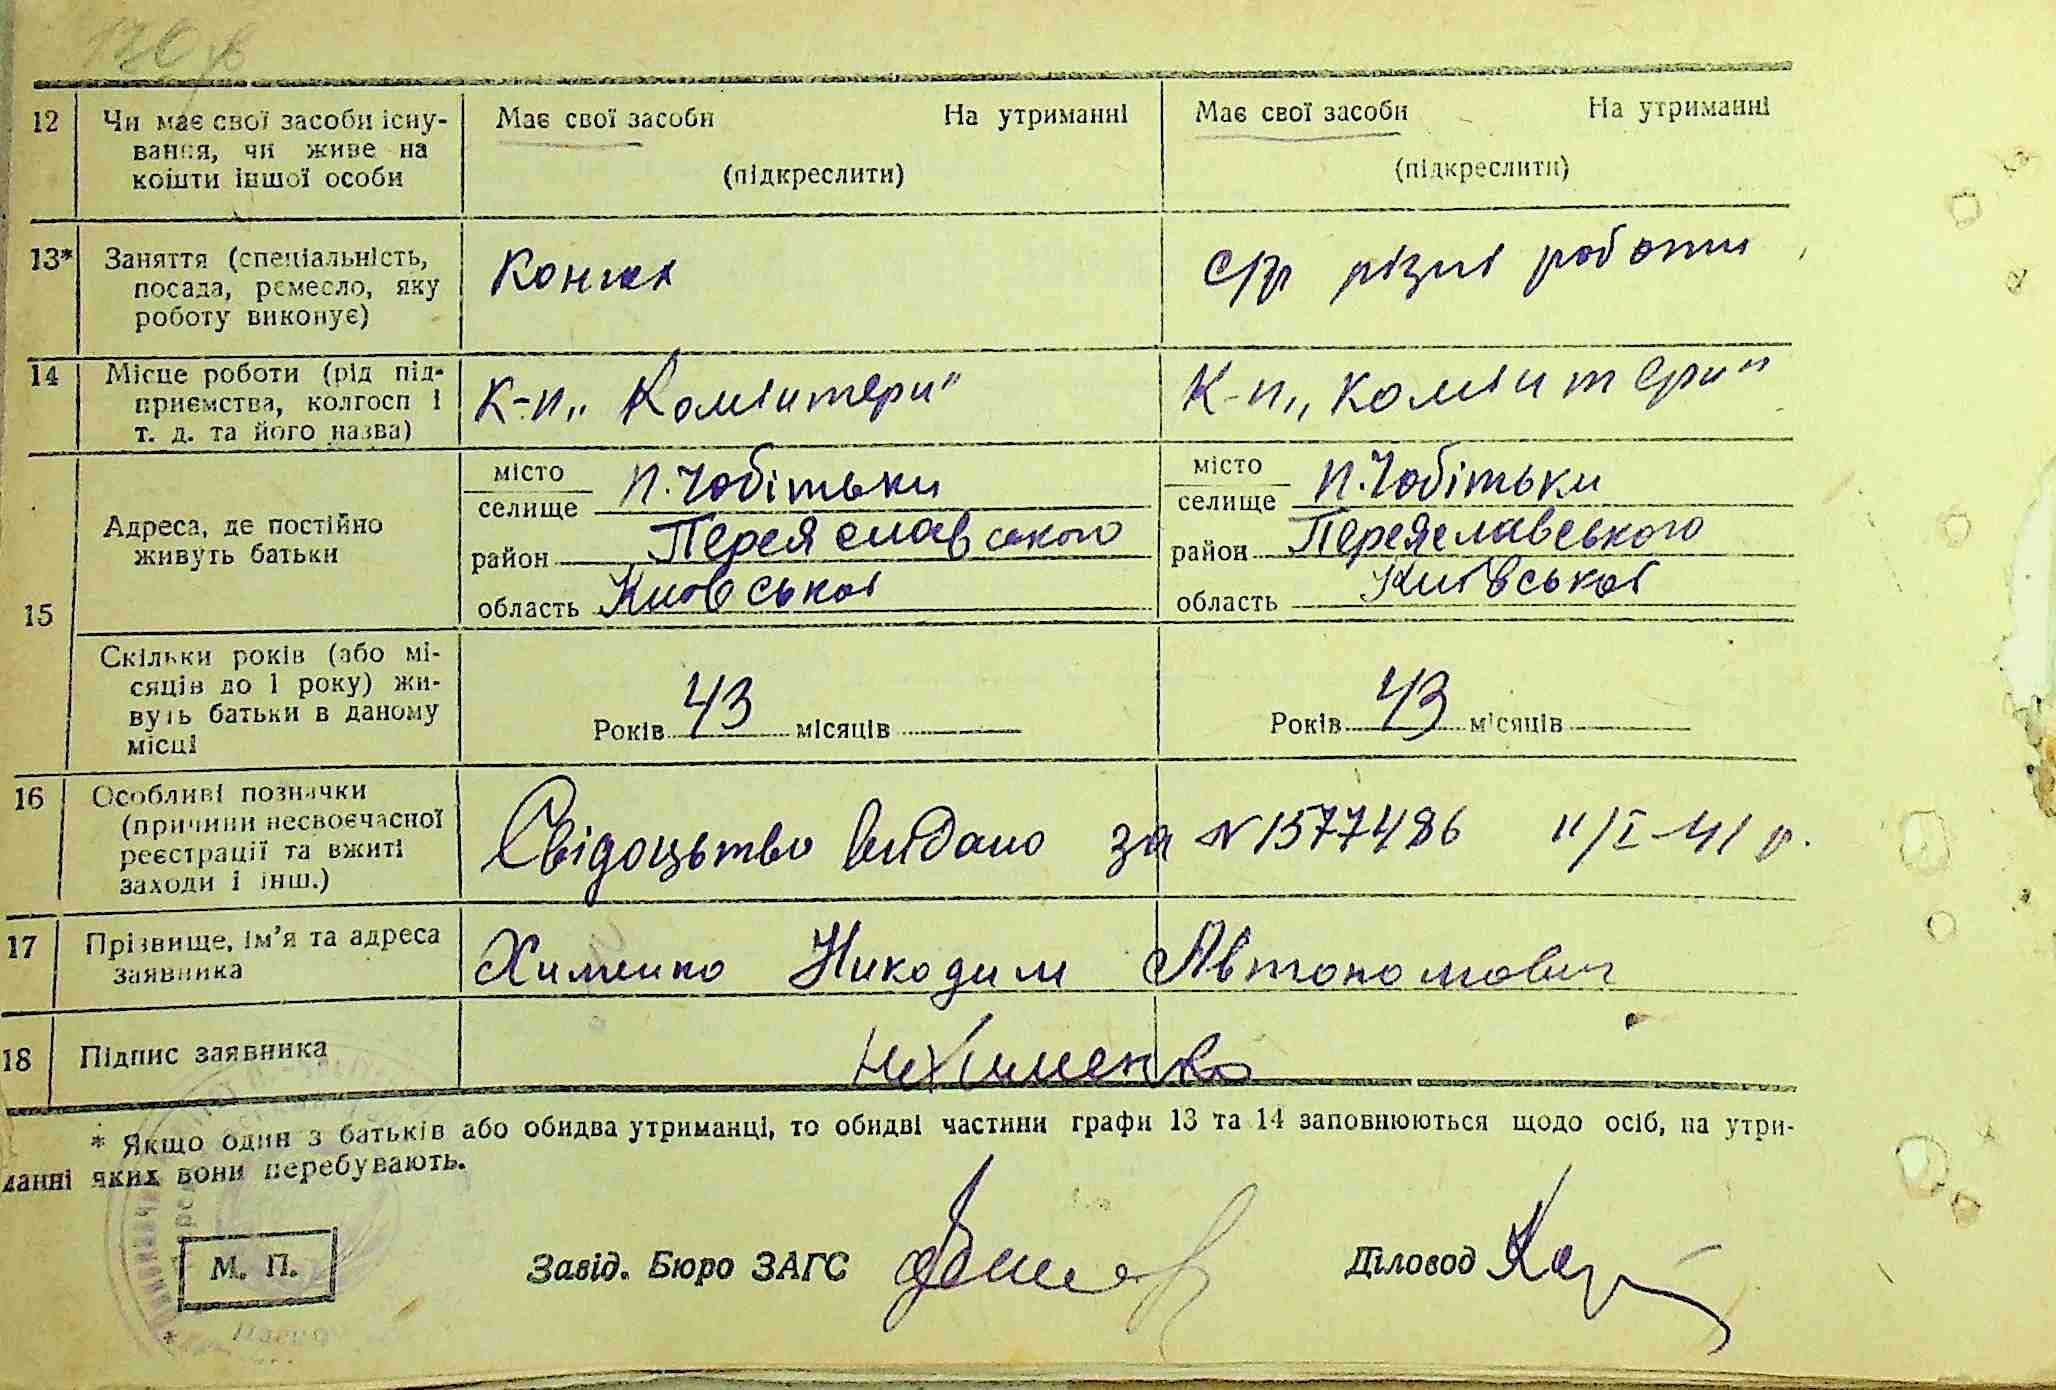 12 Чи має свої засоби існу-
вання, чи живе на
кошти іншої особи
Має свої засоби На утриманні
(підкреслити)
Має свої засоби На утриманні
(підкреслити)
13* Заняття (спеціальність,
посада, ремесло, яку
роботу виконує)
Конюх
с/гр різні роботи
14 Місце роботи (рід під-
приємства, колгосп і
т. д. та його назва)
К-п „Комінтерн"
К-п „Комінтерн"
15 Адреса, де постійно
живуть батьки
місто
селище П. Чобітьки
район Переяславського
область Київської
місто
селище П. Чобітьки
район Переяславського
область Київської
Скільки років (або мі-
сяців до 1 року) жи-
вуть батьки в даному
місці
Років 43 місяців
Років 43 місяців
16 Особливі позначки
(причини несвоєчасної
реєстрації та вжиті
заходи і інш.)
Свідоцьтво видано за № 1577486 11/I-41 р.
17 Прізвище, ім'я та адреса
заявника
Хименко Никодим Автономович
18 Підпис заявника
Н Хименко
* Якщо один з батьків або обидва утриманці, то обидві частини графи 13 та 14 заповнюються щодо осіб, на утри-
манні яких вони перебувають.
М. П.
Завід. Бюро ЗАГС
Діловод